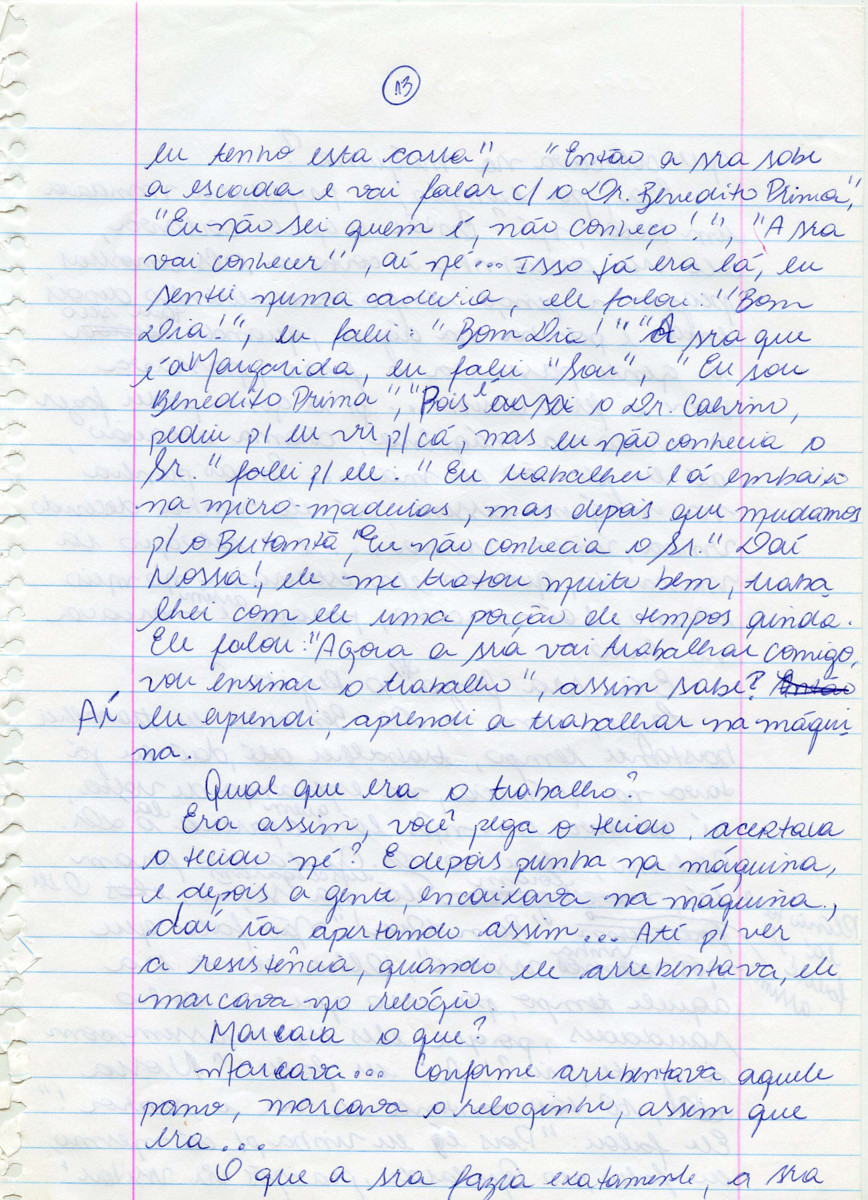 13
eu tenho esta carra", "Então a sra sobe
a escada e vai falar c/ o Dr. Benedito Prima",
"Eu não sei quem é, não conheço!", "A sra
vai conhecer", aí né... Isso já era lá, eu
sentei numa cadeira, ele falou: "Bom
Dia!", eu falei: "Bom Dia!" "A sra que
é a Margarida, eu falei "Sou", "Eu sou
Benedito Prima", "Pois é o Dr. Calvino,
pediu p/ eu vir p/ cá, mas eu não conhecia o
Sr." falei p/ ele. "Eu trabalhei lá embaixo
na micro-madeiras, mas depois que mudamos
p/ o Butantã, eu não conhecia o Sr." Daí
Nossa!, ele me tratou muito bem, traba
lhei com ele uma porção de tempos ainda.
Ele falou: "Agora a sra vai trabalhar comigo,
vou ensinar o trabalho", assim sabe? Então
Aí eu aprendi, aprendi a trabalhar na máqui
na.
Qual que era o trabalho?
Era assim, você pega o tecido, acertava
o tecido né? E depois punha na máquina,
e depois a gente, encaixava na máquina,
daí ia apertando assim... Até p/ ver
a resistência, quando ele arrebentava, ele
marcava no relógio.
Marcava o que?
Marcava... Conforme arrebentava aquele
pano, marcava o reloginho, assim que
era...
O que a sra fazia exatamente, a sra